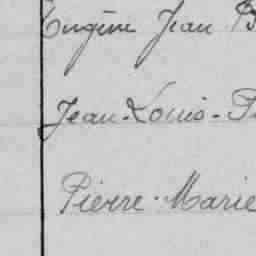 Eugène Jean B
Jean-Louis-P
Pierre-Marie